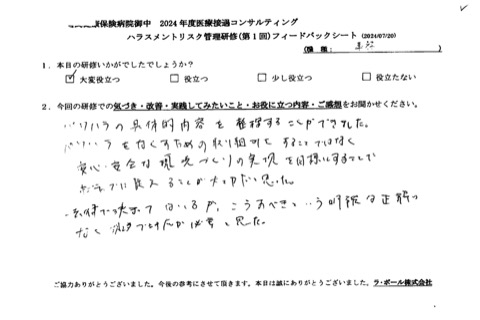 健康保険病院御中 2024年度医療接遇コンサルティング
ハラスメントリスク管理研修(第1回)フィードバックシート (2024/07/20)
(職種: )
1. 本日の研修いかがでしたでしょうか?
☑ 大変役立つ □ 役立つ □ 少し役立つ □ 役立たない
2. 今回の研修での気づき・改善・実践してみたいこと・お役に立つ内容・ご感想をお聞かせください。
パワハラの具体的内容を整理することができました。
パワハラをなくすための取り組みをすることではなく
安心・安全な環境づくりの実現を目標にすることで
ポジティブに捉えることが大切だと思った。
体 決まって いるが、こうあるべきという明確な正解は
なく 対応が必要と思った。
ご協力ありがとうございました。今後の参考にさせて頂きます。本日は誠にありがとうございました。ラ・ポール株式会社